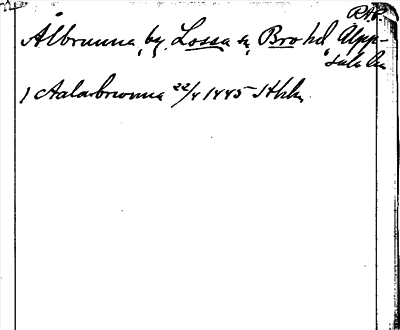 RAP.
Ålbrunna, by, Lossa sn, Bro hd Upp-
sala län
1 Aalabrwnna 22/4 1445 Sthlm